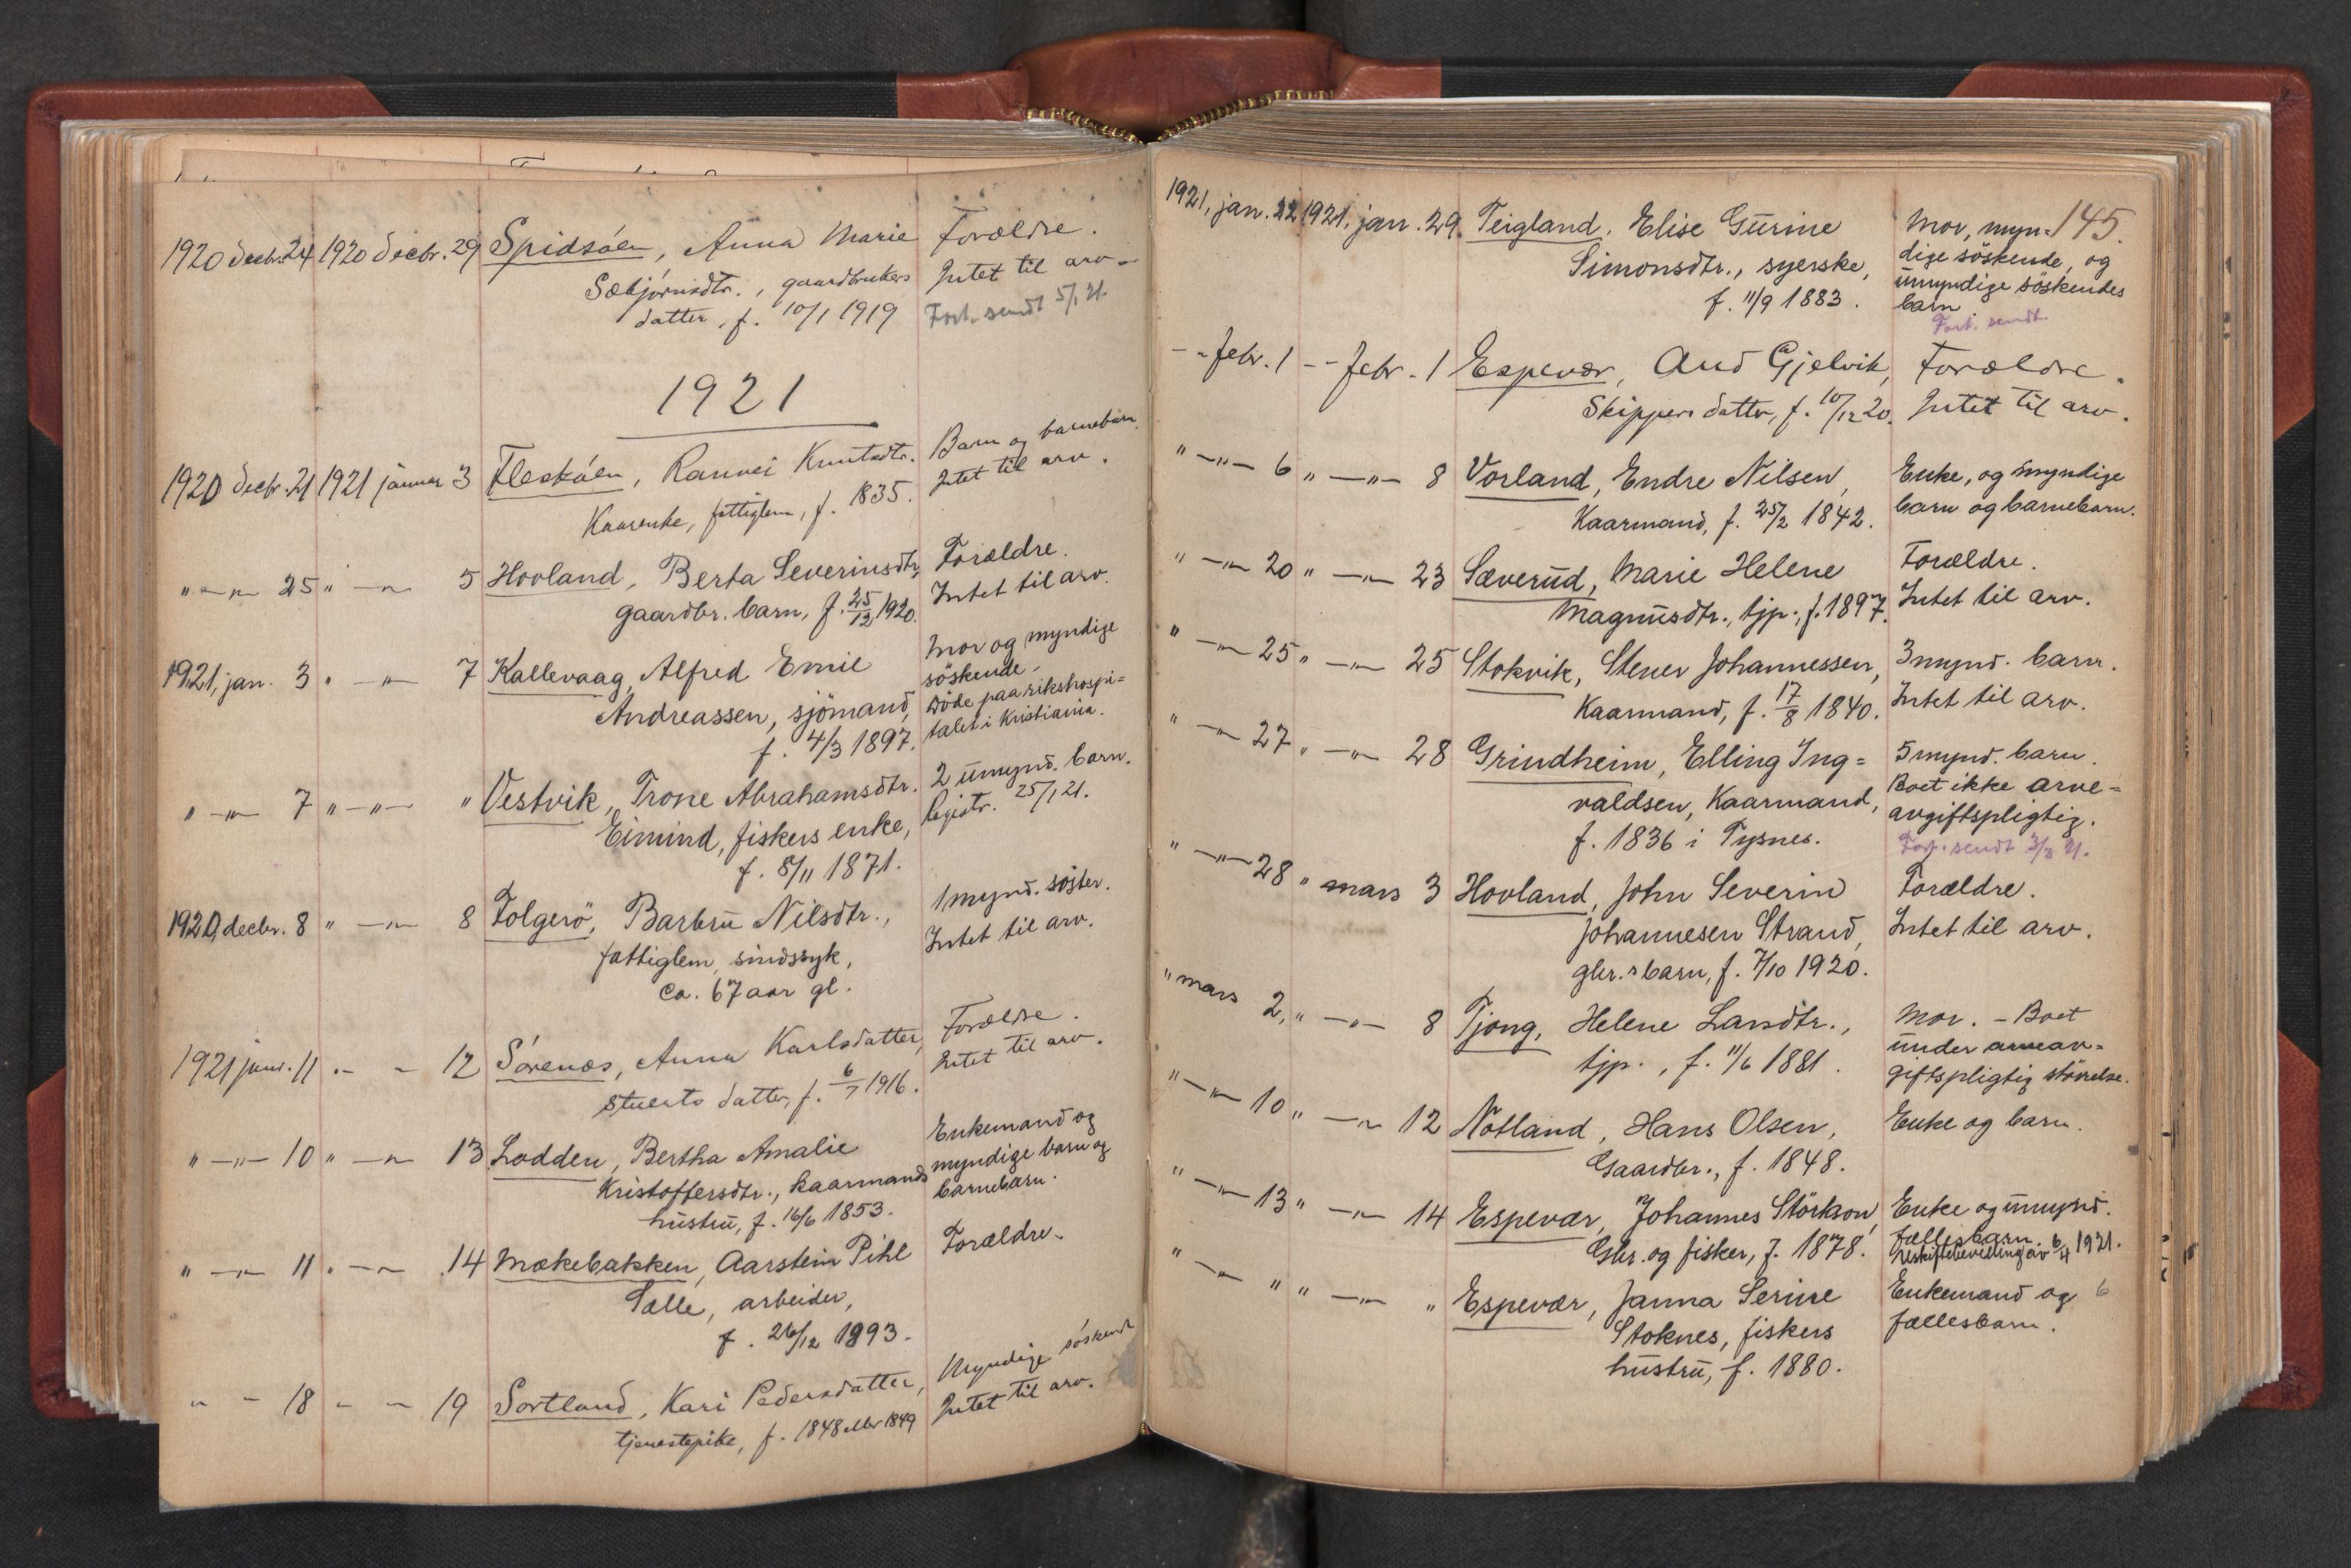 1920 decbr. 24 1920 decbr. 29 Spidsöen, Anna Marie Forældre.
Sæbjörnsdtr., gaardbrukers Intet til arv -
datter, f. 10/1 1919 Fort. sendt 5/1 21.
1921
1920 decbr. 21 1921 januar 3 Fleskåen, Rannei Knutsdtr. Barn og barnebarn.
Kaarenke, fattiglem, f. 1835. Intet til arv.
" —"— 25 " —"— 5 Hovland, Berta Severinsdtr., Forældre.
gaardbr. barn, f. 25/12 1920. Intet til arv.
1921, jan. 3 " —"— 7 Kallevaag, Alfred Emil Mor og myndige
Andreassen, sjömand, söskende.
f. 4/3 1897. Døde paa rikshospi=
talet i Kristiania.
" —"— 7 " —"— " Vestvik, Trone Abrahamsdtr. 2 umynd. barn.
Eimind, fiskers enke, Registr. 25/1 21.
f. 8/11 1871.
1920, decbr. 8 " —"— 8 Folgerö, Barbru Nilsdtr., 1 mynd. söster.
fattiglem, sindssyk, Intet til arv.
ca. 67 aar gl.
1921 janr. 11 " — 12 Sörenæs, Anna Karlsdatter, Forældre.
stuerts datter, f. 6/7 1916. Intet til arv.
" —"— 10 " —"— 13 Lodden, Bertha Amalie Enkemand og
Kristoffersdtr., kaarmands myndige barn og
hustru, f. 16/6 1853. barnebarn.
" —"— 11 " —"— 14 Mækebakken, Aarstein Pihl Forældre.
Sælle, arbeider,
f. 26/12 1893.
" - 18 " - 19 Sortland, Kari Pedersdatter, Myndige söskend
tjenestepike, f. 1848 eller 1849 Intet til arv.
145.
1921, jan. 22 1921, jan. 29. Teigland, Elise Gurine Mor, myn=
Simonsdtr., syerske, dige söskende, og
f. 11/9 1883. umyndige söskendes
barn.
Fort. sendt.
-"- febr. 1 -"- febr. 1 Espevær, Aud Gjelvik, Forældre.
Skippers datter, f. 10/12 20. Intet til arv.
" —"— 6 " —"— 8 Vorland, Endre Nilsen, Enke, og myndige
Kaarmand, f. 25/2 1842. barn og barnebarn.
" —"— 20 " —"— 23 Sæverud, Marie Helene Forældre.
Magnusdtr., tjp., f. 1897. Intet til arv.
" —"— 25 " —"— 25 Stokvik, Stener Johannessen, 3 mynd. barn.
Kaarmand, f. 17/8 1840. Intet til arv.
" —"— 27 " —"— 28 Grindheim, Elling Ing= 5 mynd. barn.
valdsen, Kaarmand, Boet ikke arve=
f. 1836 i Tysnes. avgiftspligtig.
Fort. sendt 3/3 21.
" —"— 28 " mars 3 Hovland, John Severin Forældre.
Johannesen Strand, Intet til arv.
gbr.s barn, f. 7/10 1920.
" mars 2, " —"— 8 Tjong, Helene Larsdtr., Mor. - Boet
tjp., f. 11/6 1881. under arveav=
giftspligtig störrelse.
" —"— 10 " —"— 12 Notland, Hans Olsen, Enke og barn.
Gaardbr., f. 1848.
" —"— 13 " —"— 14 Espevær, Johannes Störkson, Enke og umynd.
Gbr. og fisker, f. 1878. fællesbarn.
Uskiftebevilling av 6/4 1921.
" —"— " " —"— " Espevær, Janna Serine Enkemand og 6
Stoknes, fiskers fællesbarn.
hustru, f. 1880.